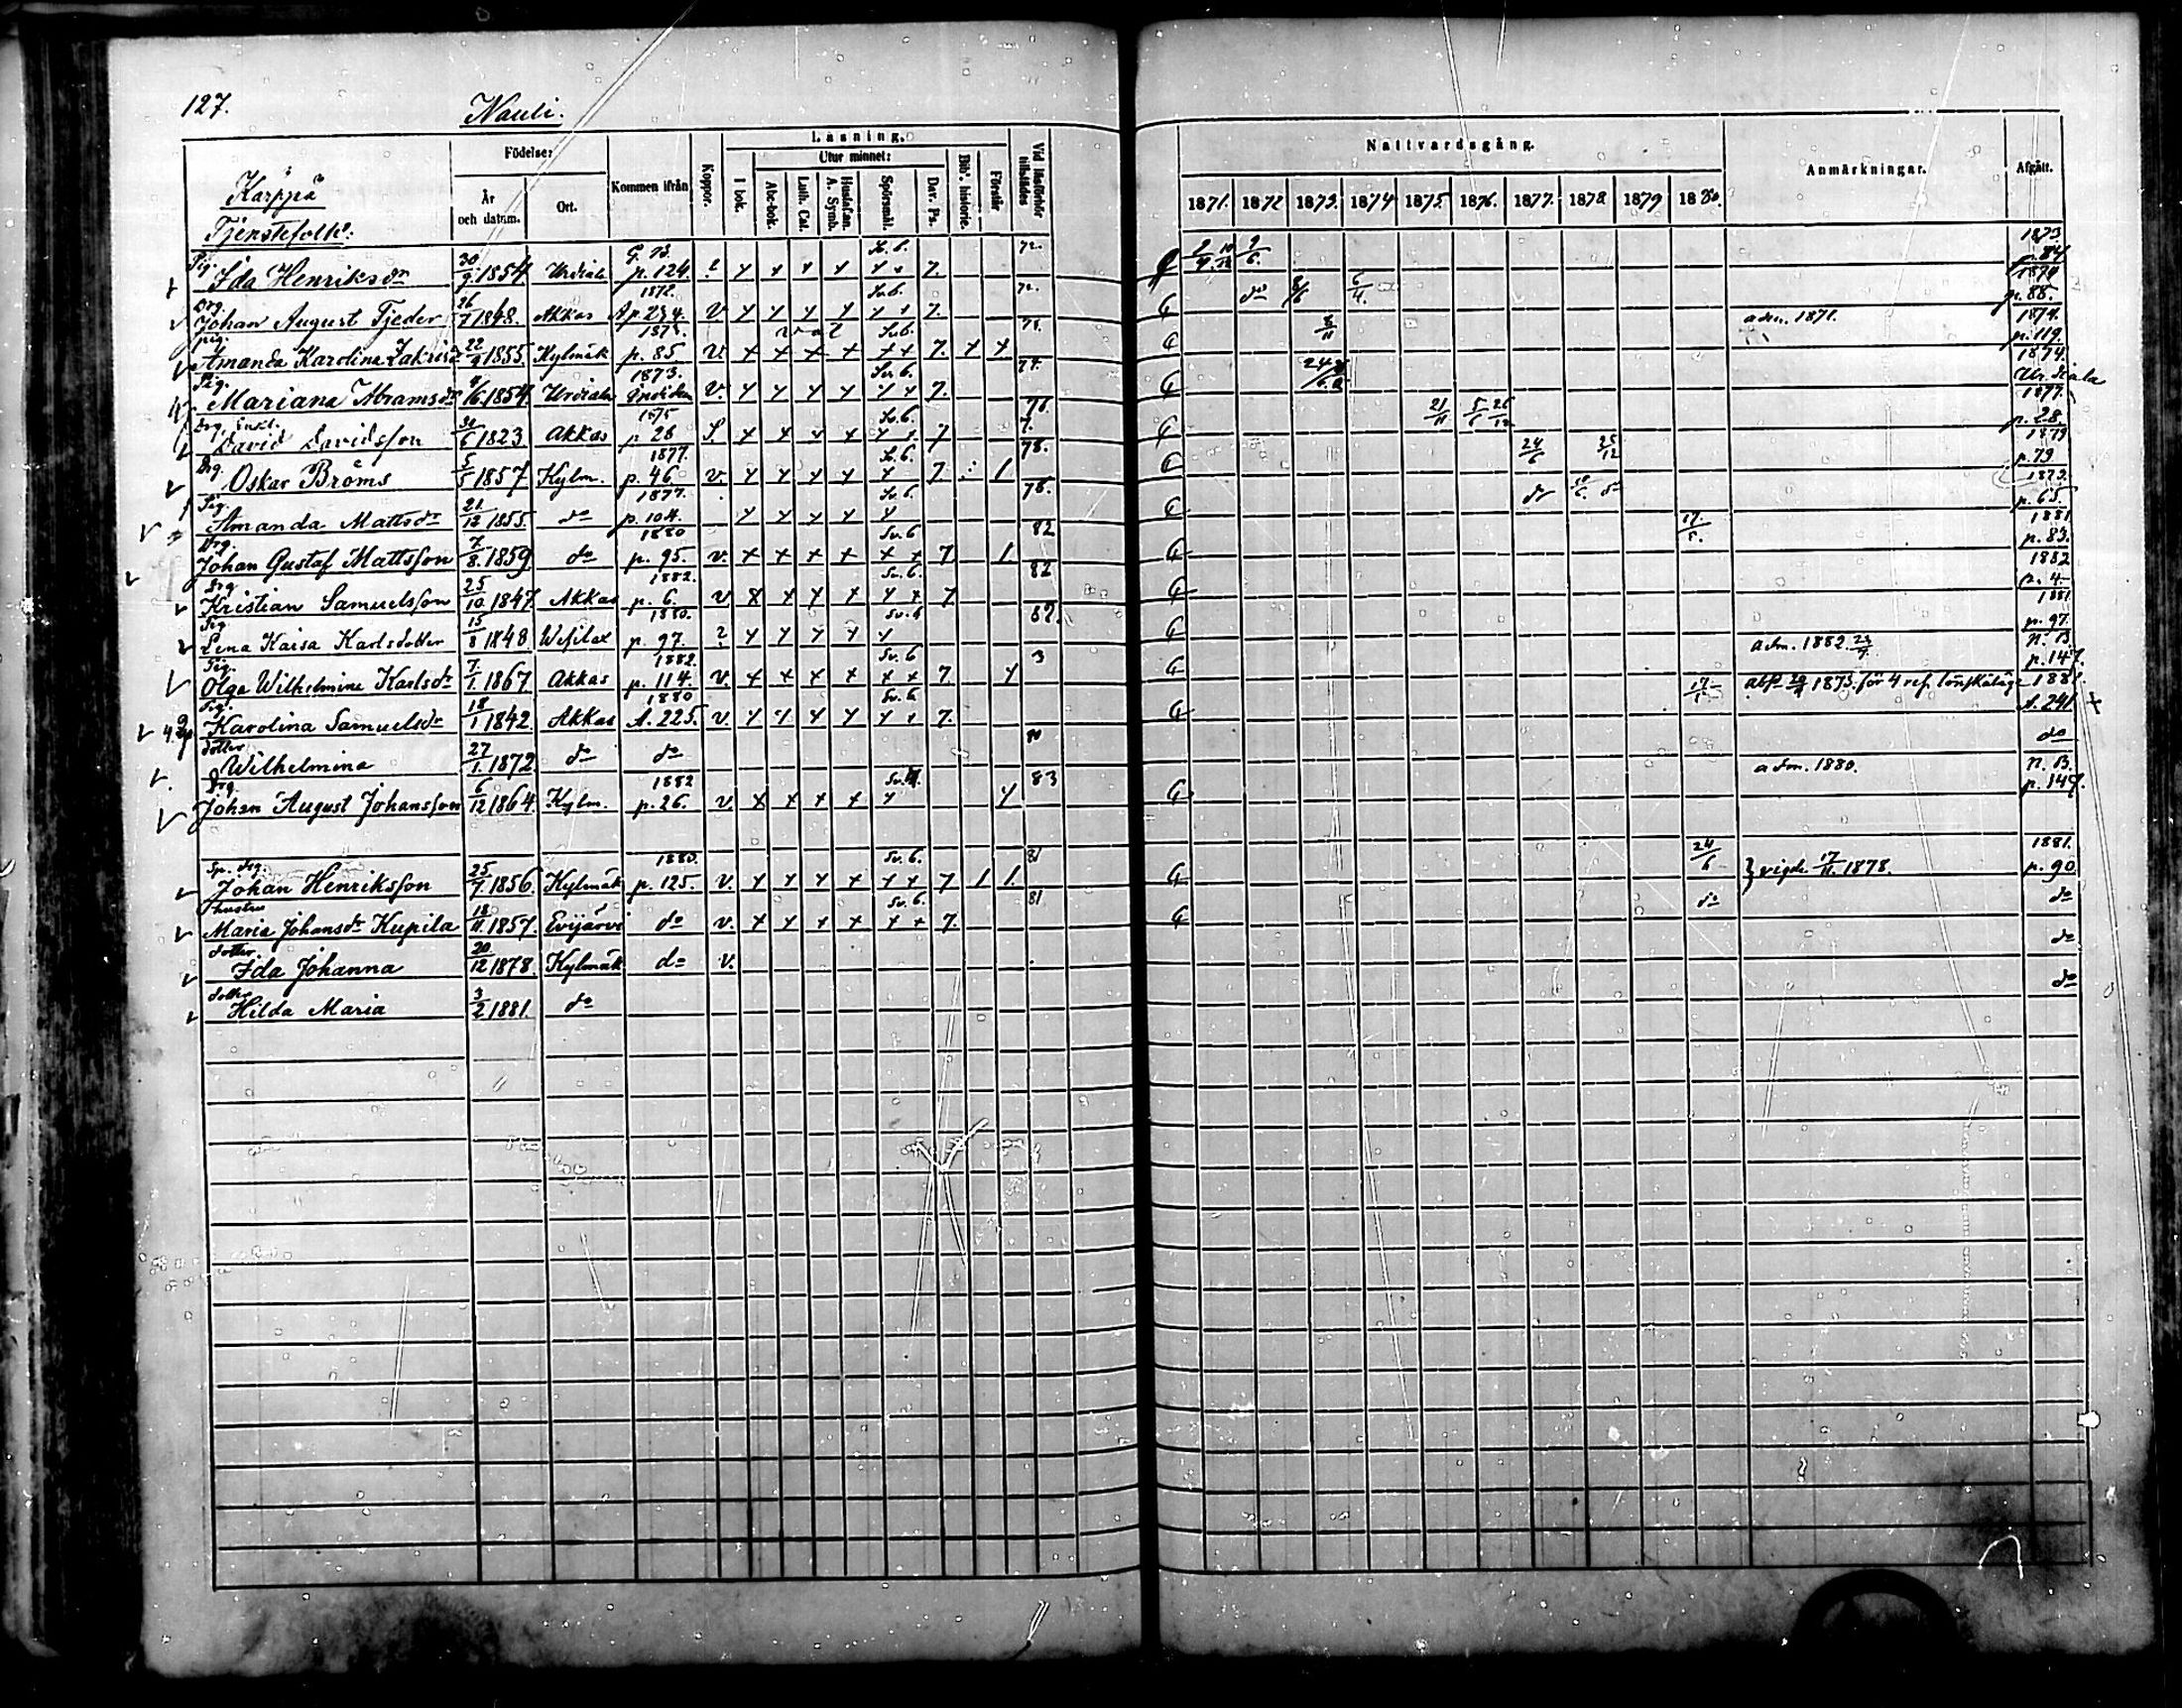 127. Nauli.
Käppä
Tjenstefolk.
Födelse:
År och datum.
Ort.
Kommen ifrån
Koppor.
Läsning.
I bok.
Utur minnet:
Abc-bok.
Luth. Cat.
Hustaflan. A. Symb.
Spörsmål.
Dav. Ps.
Bib. historie.
Förstår
Vid läsförhör tillstädes
Nattvardsgång.
1871. 1872 1873. 1874 1875. 1876. 1877. 1878 1879 1880.
Anmärkningar.
Afgått.
Pig. Ida Henriksdr 30/9 1854 Urdiala p. 124. 72. 1873
Drg. Johan August Tjeder 26/7 1848. Akkas 1872. Sv. 6. 72. do 6/4 1874 p. 88.
pig. Amanda Karolina Zakrisd 22/9 1855 Kylmäk 1873. p. 85 v. Sv. 6. 7. adm. 1871. 1874. p. 119.
Pig. Mariana Abramsdr 1854 Urdiala 1873. v. Sv. 6. 7. 74. 1874.
Drg. David Davidsson 1823 Akkas 1875 p. 28 Sv. 6. 7 21/11 5/6 26/12 1877. p. 28.
Drg. Oskar Bröms 5/5 1857 Kylm. 1877. p. 46 v. Sv. 6. 7. 78. 24/6 25/12 1879 p. 79
Pig. Amanda Mattsdr 21/12 1855. do 1877. p. 104. Sv. 6. 78. do p. 65.
Drg. Johan Gustaf Mattsson 7/8. 1859 do 1880 p. 95. v. Sv. 6 7. 1. 82 17/5. 1881 p. 83.
Drg. Kristian Samuelsson 25/10 1847. Akkas 1882. p. 6. v. Sv. 6. 7 82 1882 p. 4.
Pig. Lena Kaisa Karlsdotter 15/8 1848 Wesilax 1880. p. 97. ? Sv. 6 82. 1881 p. 97.
Pig. Olga Wilhelmina Karlsdr 7/1. 1867. Akkas 1882. p. 114. v. Sv. 6 7 3 adm. 1882. N. B. p. 147.
Pig. Karolina Samuelsdr 18/1 1842. Akkas 1880 A. 225. v. Sv. 6 7. 1873. för 4 1881. A. 241 +
dotter Wilhelmina 27/1. 1872 do do do
Drg. Johan August Johansson 6/12 1864. Kylm. 1882 p. 26. v. 83 adm. 1880. N. B. p. 147.
Johan Henriksson 25/7 1856. Kylmäk 1880. p. 125. v. Sv. 6. 7 1 1. 81 24/6 vigde 17/11. 1878. 1881. p. 90
hustru Maria Johansdr Kupila 18/11. 1857. Evijärvi do v. Sv. 6. 7. 81 do do
dotter Ida Johanna 20/12 1878. Kylmäk do v. do
dotter Hilda Maria 3/2 1881. do do